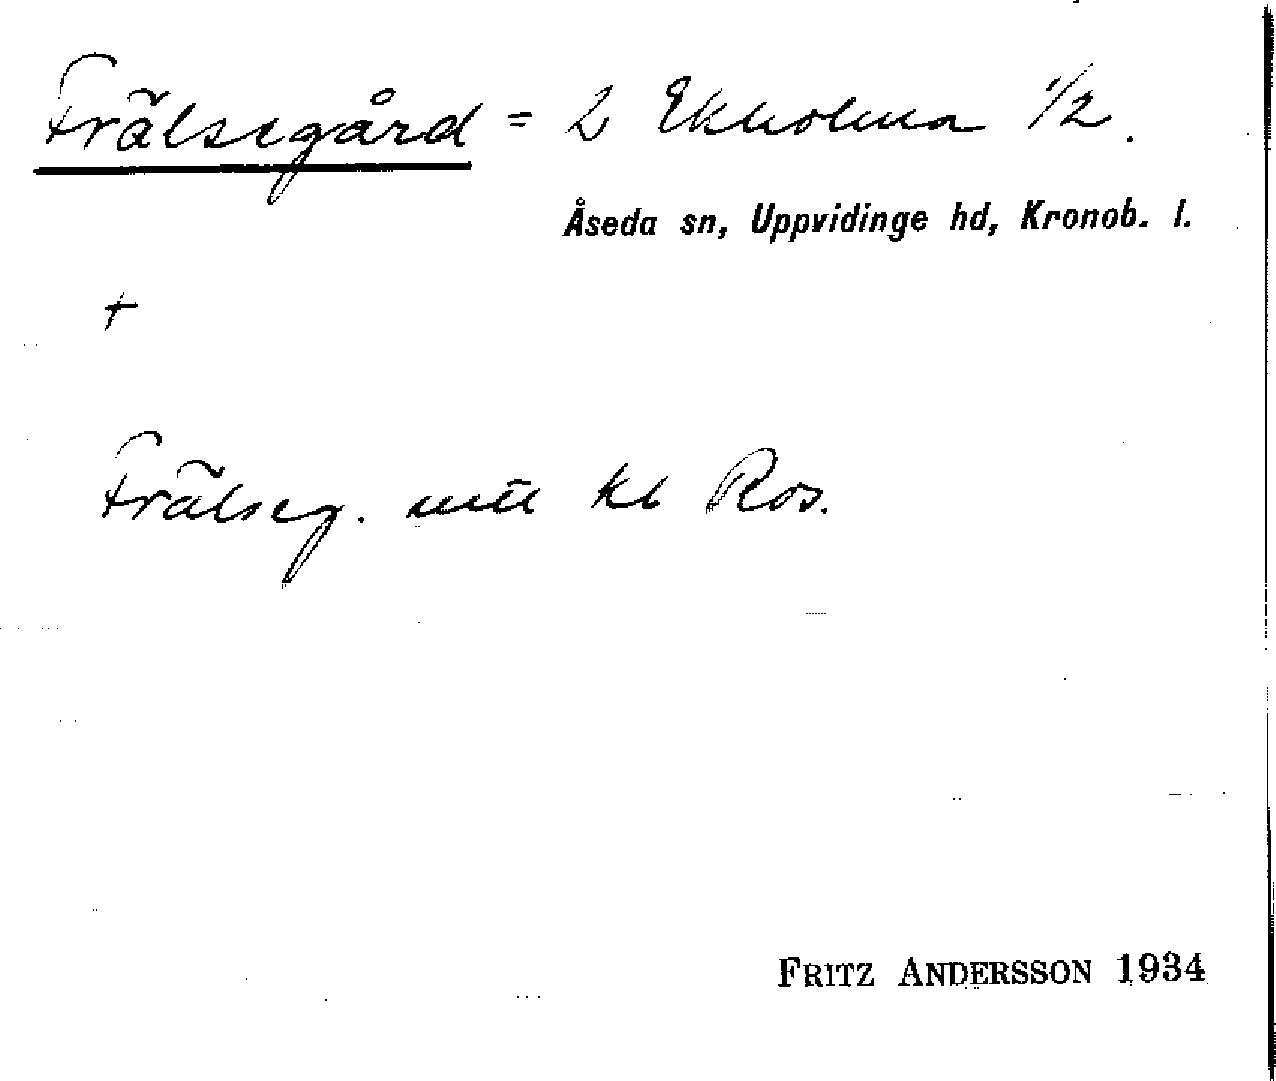 Frälsegård = 2 Ekholma 1/2.
Åseda sn, Uppvidinge hd, Kronob. l.
+
Frälseg. kl Ros.
FRITZ ANDERSSON 1934